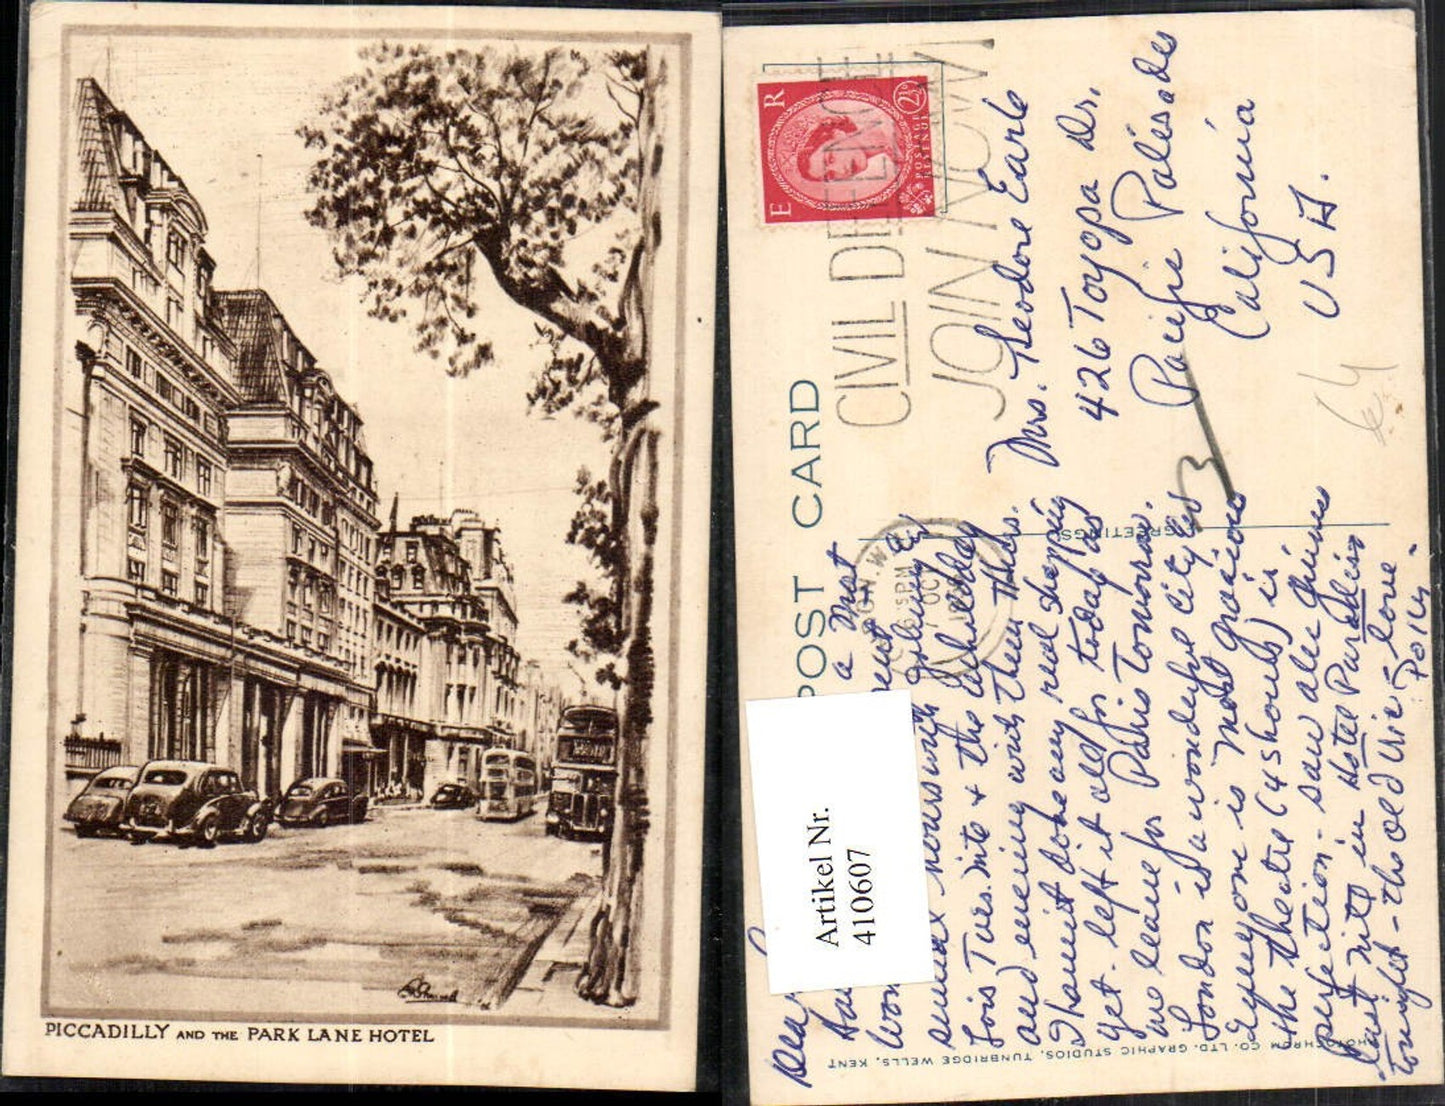 PICCADILLY AND THE PARK LANE HOTEL
POST CARD
E R
2½D
POSTAGE
REVENUE
CIVIL DEFENCE
JOIN NOW
6:15 PM
7 OCT
GREETINGS
PHOTOCHROM CO. LTD. GRAPHIC STUDIOS, TUNBRIDGE WELLS, KENT
Artikel Nr.
410607
Mrs. Theodore Earle
426 Toyopa Dr.
Pacific Palisades
California
USA.
64
3
Dear
a most
Lois Tues. nite & the all day
and evening with them Thurs.
I havent done any real shopping
yet. left it all for today as
we leave for Paris tomorrow.
London is a wonderful city
Everyone is most gracious
& the theatre (4 shows) is
perfection - saw Alec Guiness
last nite in Hotel Paradiso
tonight - the old Vic - Love
Polly